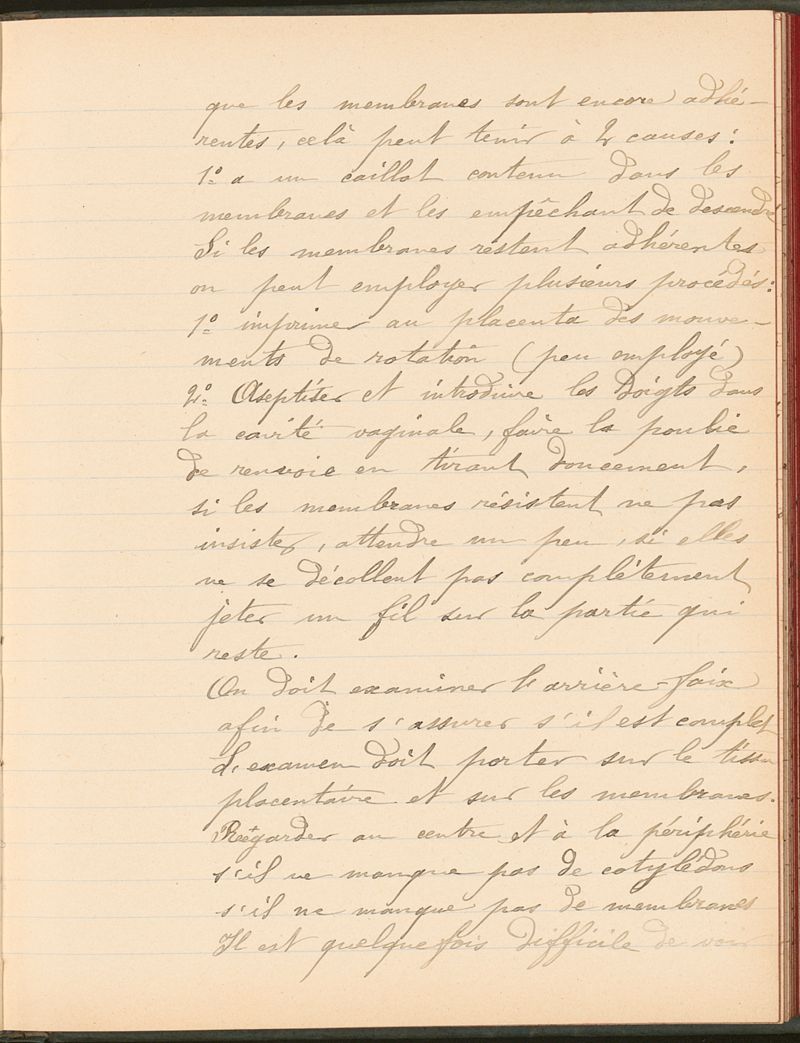 que les membranes sont encore adhé-
rentes, celà peut tenir à 2 causes :
1º a un caillot contenu dans les
membranes et les empêchant de descendre
Si les membranes restent adhérentes
on peut employer plusieurs procédés :
1º imprimer au placenta des mouve-
ments de rotation (peu employé)
2º Aseptiser et introduire les doigts dans
la cavité vaginale, faire la poulie
de renvoie en tirant doucement,
si les membranes résistent ne pas
insister, attendre un peu, si elles
ne se décollent pas complétement
jeter un fil sur la partie qui
reste.
On doit examiner l'arrière-faix
afin de s'assurer s'il est complet
L'examen doit porter sur le tissu
placentaire et sur les membranes.
Regarder au centre et à la périphérie
s'il ne manque pas de cotylédons
s'il ne manque pas de membranes
Il est quelquefois difficile de voir